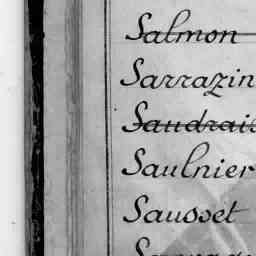 Salmon
Sarrazin
Saudrais
Saulnier
Sausset